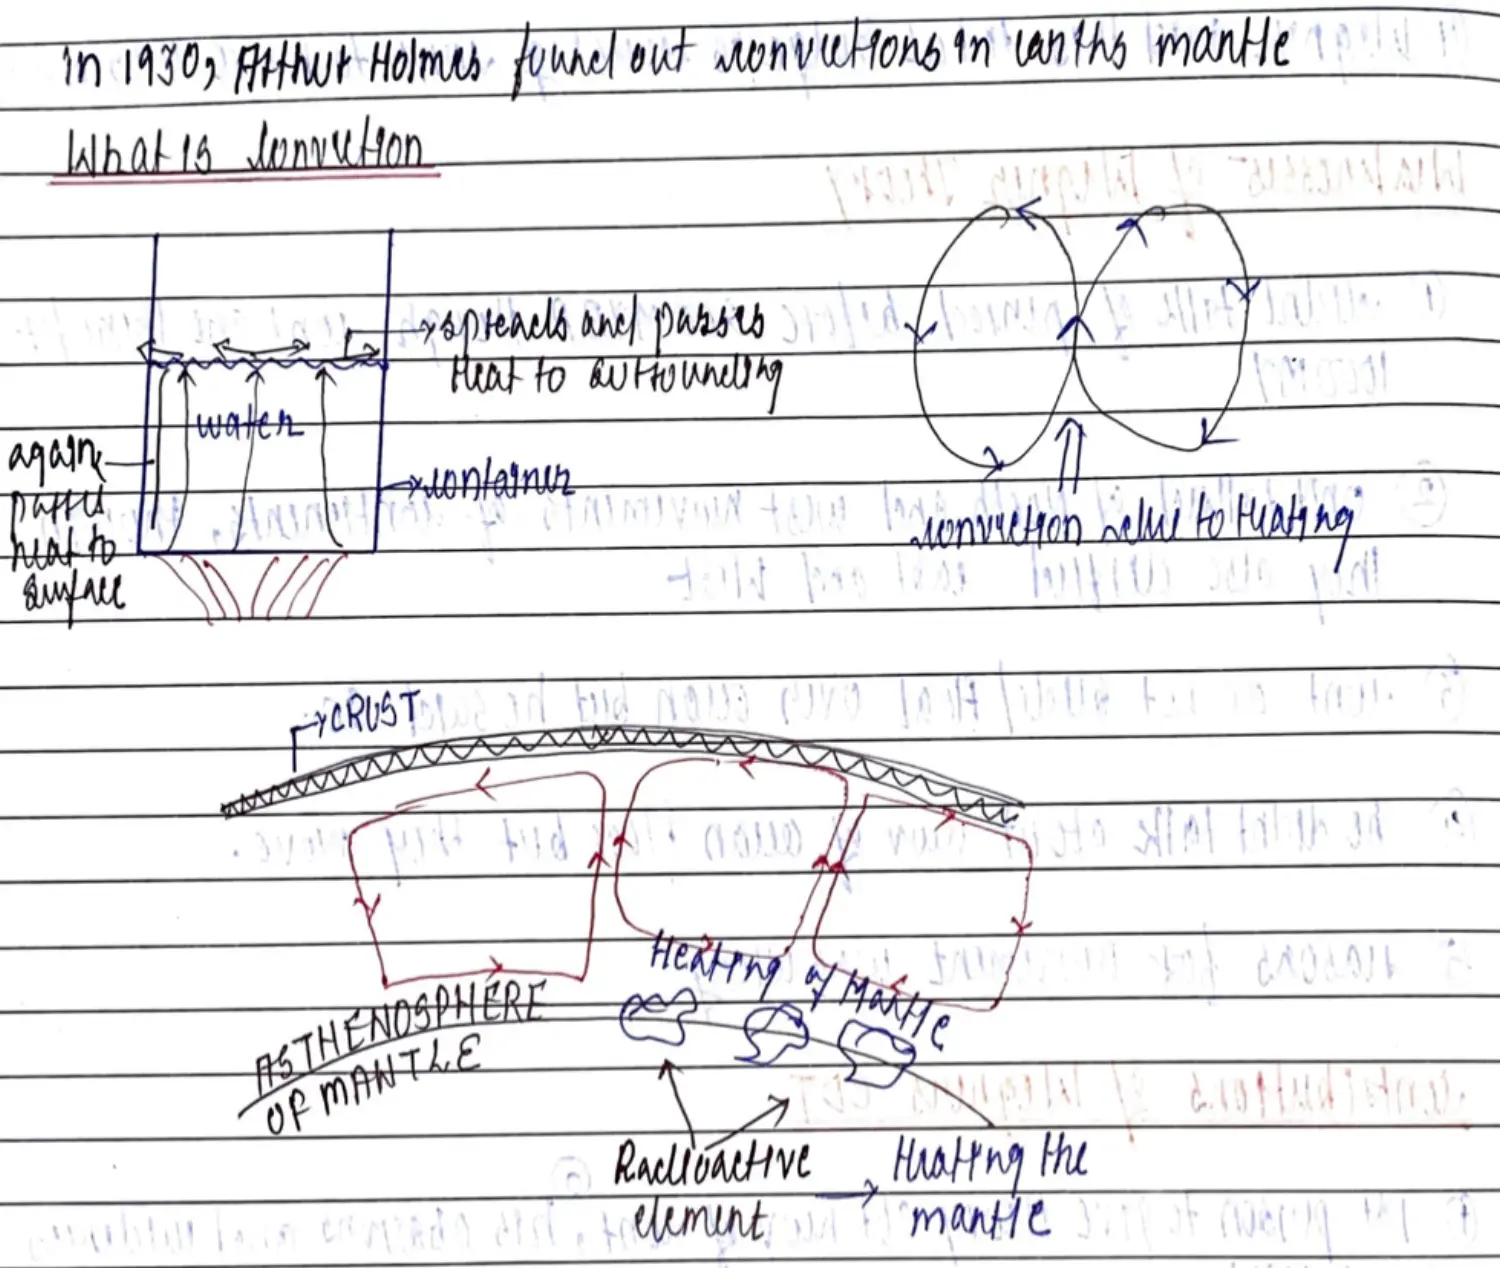 in 1930, Arthur Holmes found out convections in earths mantle
What is convection
spreads and passes
heat to surrounding
water
again
passes
heat to
surface
container
convection due to heating
CRUST
Heating of Mantle
ASTHENOSPHERE
OF MANTLE
Radioactive
element
Heating the
mantle